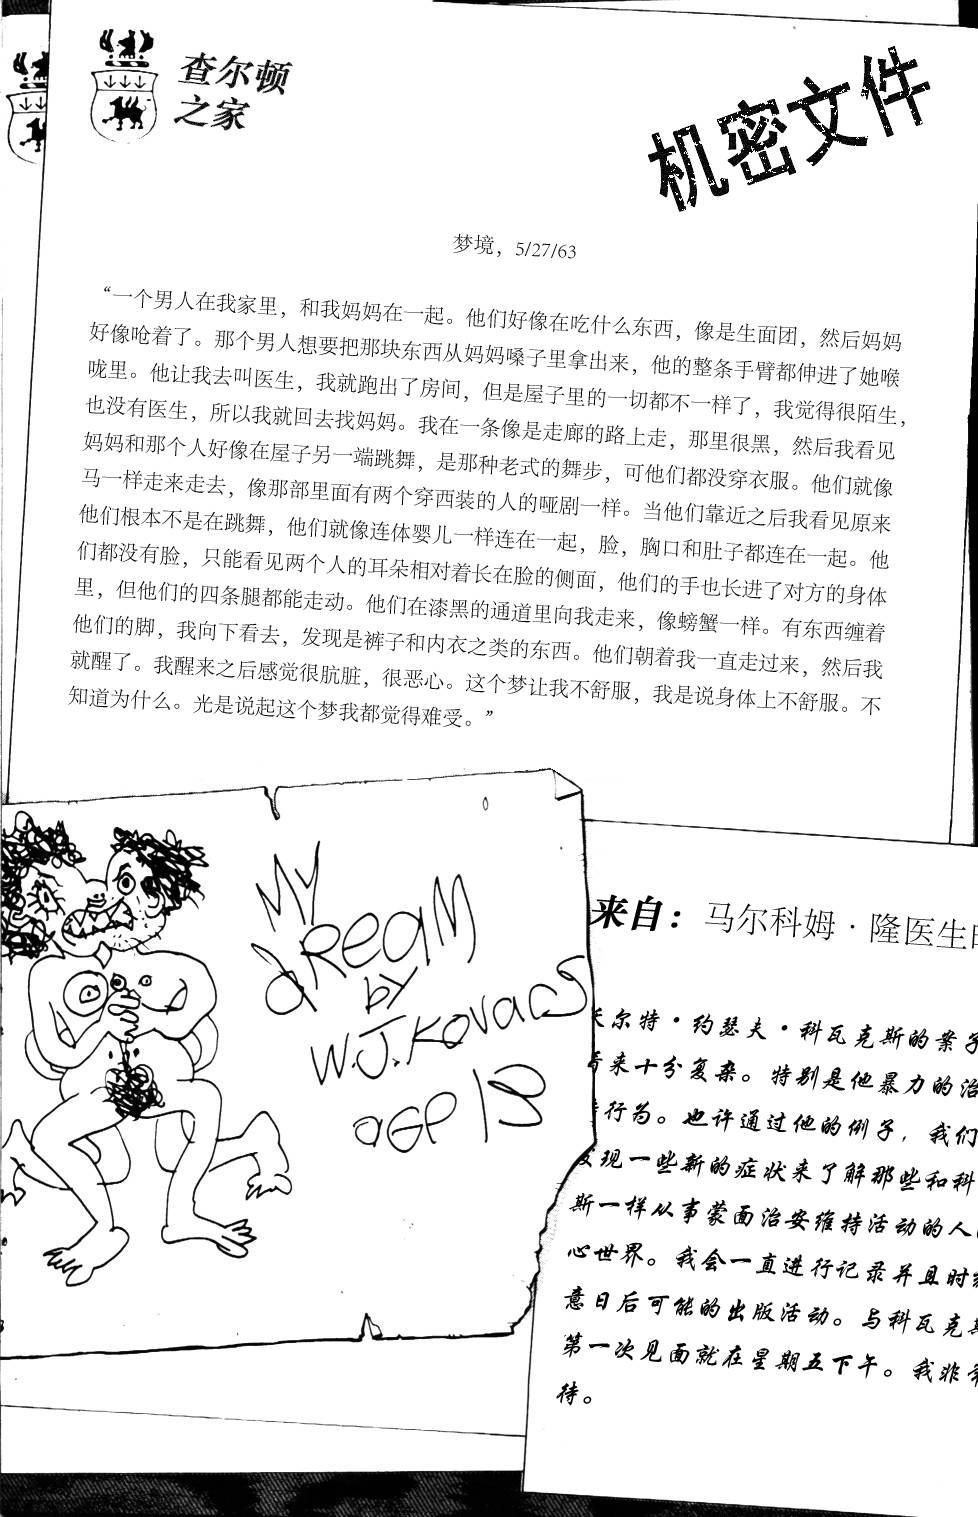 查尔顿
之家
机密文件
梦境，5/27/63
“一个男人在我家里，和我妈妈在一起。他们好像在吃什么东西，像是生面团，然后妈妈
好像呛着了。那个男人想要把那块东西从妈妈嗓子里拿出来，他的整条手臂都伸进了她喉
咙里。他让我去叫医生，我就跑出了房间，但是屋子里的一切都不一样了，我觉得很陌生，
也没有医生，所以我就回去找妈妈。我在一条像是走廊的路上走，那里很黑，然后我看见
妈妈和那个人好像在屋子另一端跳舞，是那种老式的舞步，可他们都没穿衣服。他们就像
马一样走来走去，像那部里面有两个穿西装的人的哑剧一样。当他们靠近之后我看见原来
他们根本不是在跳舞，他们就像连体婴儿一样连在一起，脸，胸口和肚子都连在一起。他
们都没有脸，只能看见两个人的耳朵相对着长在脸的侧面，他们的手也长进了对方的身体
里，但他们的四条腿都能走动。他们在漆黑的通道里向我走来，像螃蟹一样。有东西缠着
他们的脚，我向下看去，发现是裤子和内衣之类的东西。他们朝着我一直走过来，然后我
就醒了。我醒来之后感觉很肮脏，很恶心。这个梦让我不舒服，我是说身体上不舒服。不
知道为什么。光是说起这个梦我都觉得难受。”
MY
dReaM
by
W.J.Kovacs
age 13
来自：马尔科姆·隆医生
尔特·约瑟夫·科瓦克斯的案
来十分复杂。特别是他暴力的治
行为。也许通过他的例子，我们
现一些新的症状来了解那些和科
斯一样从事蒙面治安维持活动的人
心世界。我会一直进行记录并且时
意日后可能的出版活动。与科瓦克
第一次见面就在星期五下午。我非
待。